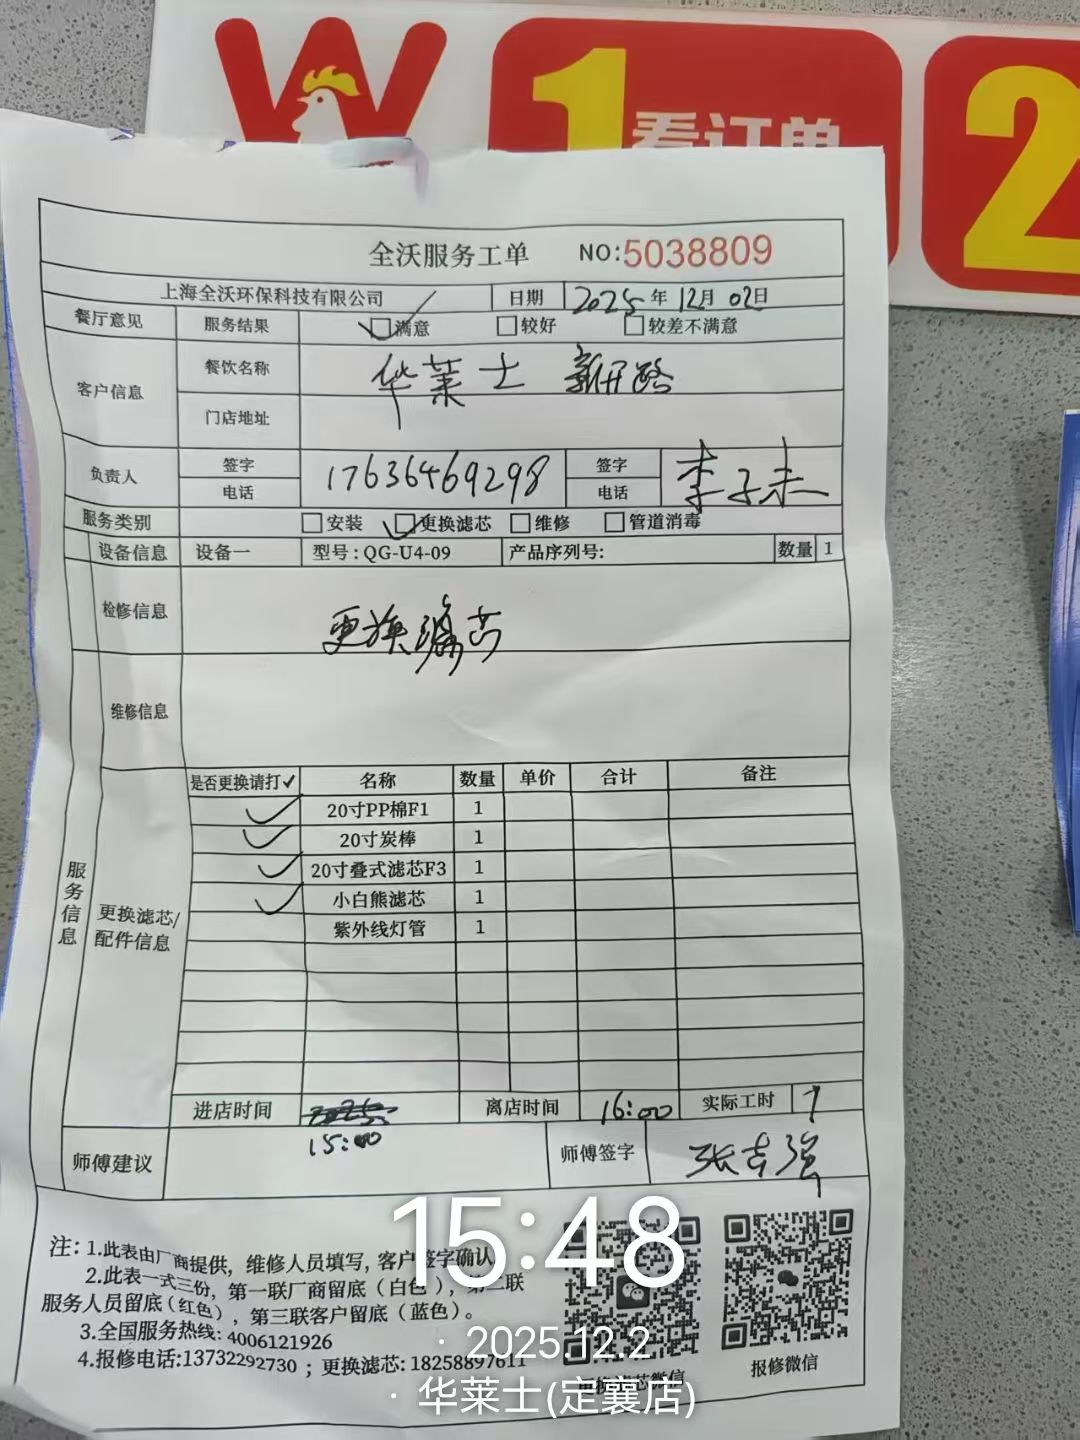 W 1看订单 2
全沃服务工单 NO:5038809
上海全沃环保科技有限公司 日期 2025年12月02日
餐厅意见 服务结果 满意 较好 较差不满意
客户信息 餐饮名称 华莱士 新开路
门店地址
负责人 签字 电话 17636469298 签字 电话 李子未
服务类别 安装 更换滤芯 维修 管道消毒
设备信息 设备一 型号:QG-U4-09 产品序列号: 数量 1
检修信息 更换滤芯
维修信息
服务信息
更换滤芯/配件信息
是否更换请打✓ 名称 数量 单价 合计 备注
✓ 20寸PP棉F1 1
✓ 20寸炭棒 1
✓ 20寸叠式滤芯F3 1
✓ 小白熊滤芯 1
紫外线灯管 1
进店时间 15:00 离店时间 16:00 实际工时 1
师傅建议 师傅签字 张吉强
注:1.此表由厂商提供，维修人员填写，客户签字确认
2.此表一式三份，第一联厂商留底（白色），第二联
服务人员留底（红色），第三联客户留底（蓝色）。
3.全国服务热线:4006121926
4.报修电话:13732292730；更换滤芯:18258897611
更换滤芯微信 报修微信
15:48
· 2025.12.2
· 华莱士(定襄店)